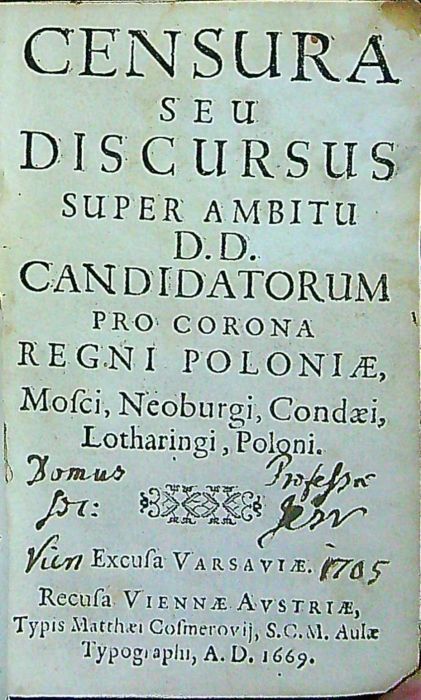 CENSURA
SEU
DISCURSUS
SUPER AMBITU
D.D.
CANDIDATORUM
PRO CORONA
REGNI POLONIÆ,
Moſci, Neoburgi, Condæi,
Lotharingi, Poloni.
Domus Profeſsæ
Vien Excuſa VARSAVIÆ. 1705
Recuſa VIENNÆ AVSTRIÆ,
Typis Matthæi Coſmerovij, S.C.M. Aulæ
Typographi, A. D. 1669.